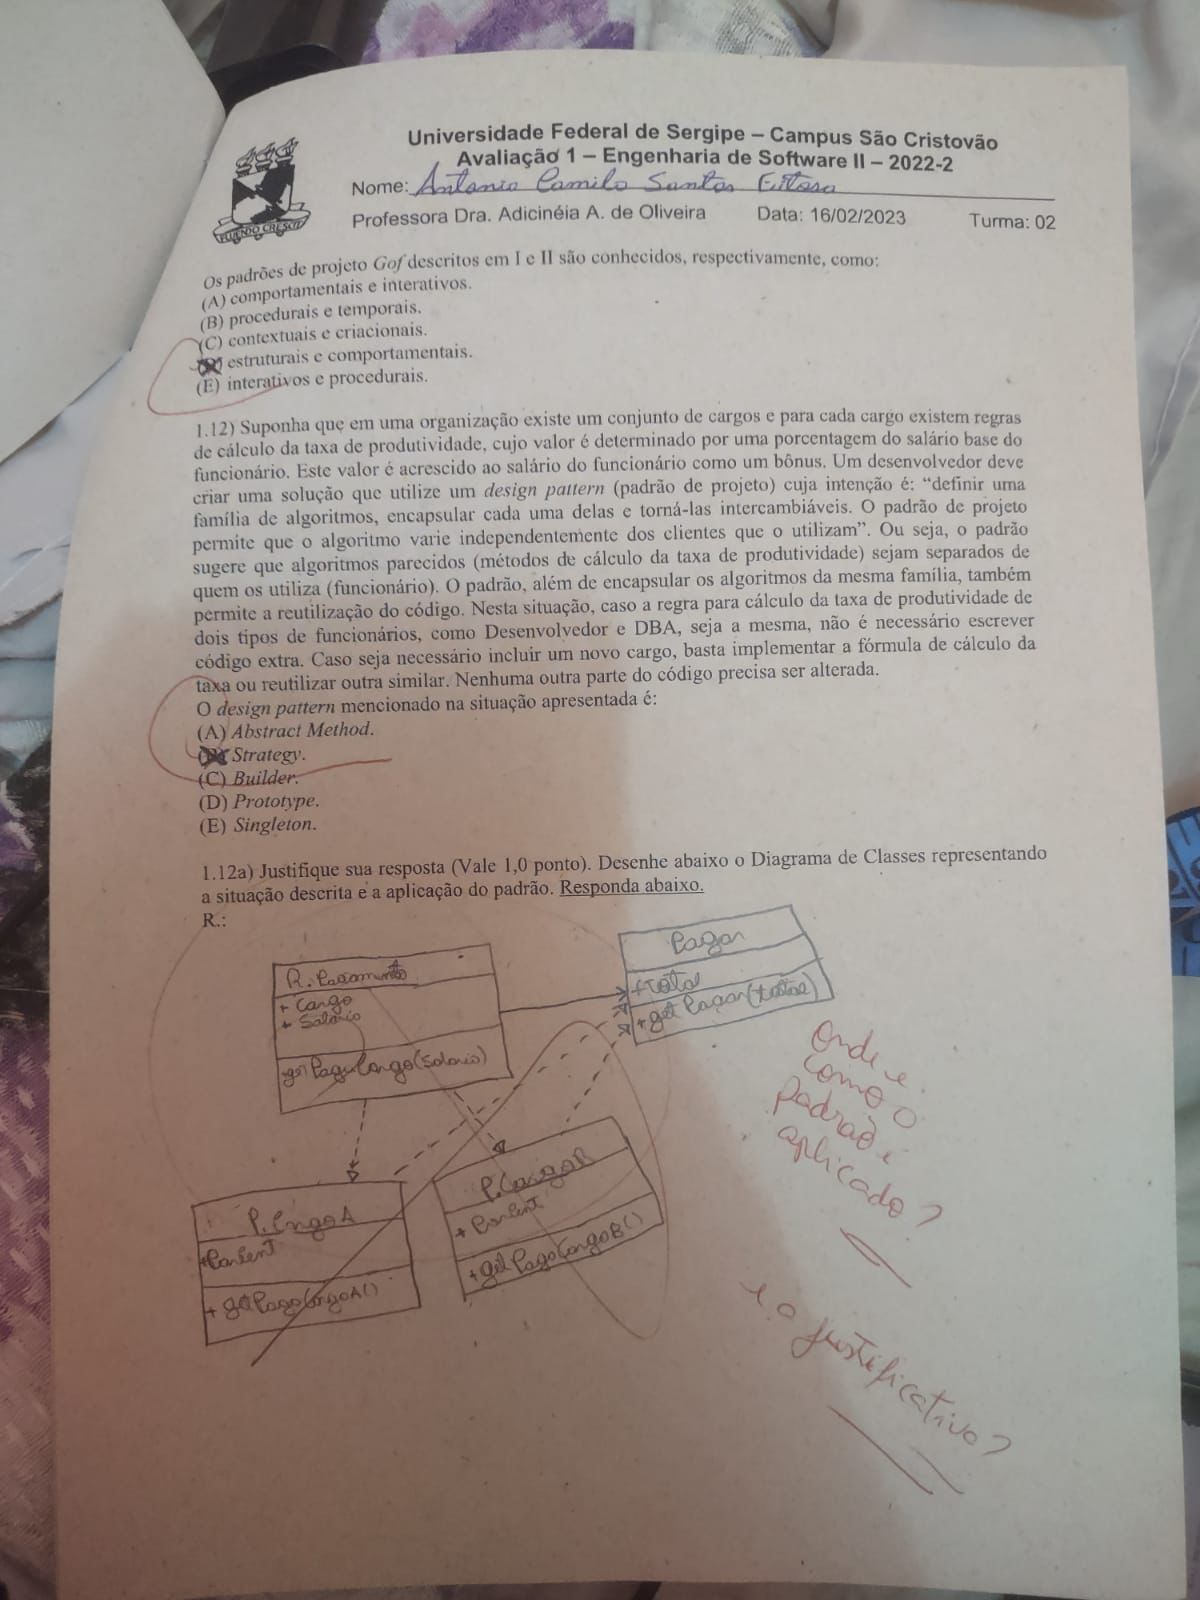 Universidade Federal de Sergipe – Campus São Cristovão
Avaliação 1 – Engenharia de Software II – 2022-2
Nome: Antonio Camilo Santos
Professora Dra. Adicinéia A. de Oliveira Data: 16/02/2023 Turma: 02
Os padrões de projeto Gof descritos em I e II são conhecidos, respectivamente, como:
(A) comportamentais e interativos.
(B) procedurais e temporais.
(C) contextuais e criacionais.
estruturais e comportamentais.
(E) interativos e procedurais.
1.12) Suponha que em uma organização existe um conjunto de cargos e para cada cargo existem regras
de cálculo da taxa de produtividade, cujo valor é determinado por uma porcentagem do salário base do
funcionário. Este valor é acrescido ao salário do funcionário como um bônus. Um desenvolvedor deve
criar uma solução que utilize um design pattern (padrão de projeto) cuja intenção é: “definir uma
família de algoritmos, encapsular cada uma delas e torná-las intercambiáveis. O padrão de projeto
permite que o algoritmo varie independentemente dos clientes que o utilizam”. Ou seja, o padrão
sugere que algoritmos parecidos (métodos de cálculo da taxa de produtividade) sejam separados de
quem os utiliza (funcionário). O padrão, além de encapsular os algoritmos da mesma família, também
permite a reutilização do código. Nesta situação, caso a regra para cálculo da taxa de produtividade de
dois tipos de funcionários, como Desenvolvedor e DBA, seja a mesma, não é necessário escrever
código extra. Caso seja necessário incluir um novo cargo, basta implementar a fórmula de cálculo da
taxa ou reutilizar outra similar. Nenhuma outra parte do código precisa ser alterada.
O design pattern mencionado na situação apresentada é:
(A) Abstract Method.
Strategy.
(C) Builder.
(D) Prototype.
(E) Singleton.
1.12a) Justifique sua resposta (Vale 1,0 ponto). Desenhe abaixo o Diagrama de Classes representando
a situação descrita e a aplicação do padrão. Responda abaixo.
R.:
Pagar
+total
+get Pagar(total)
+ Cargo
+ Salario
P.CargoA
+ getPagoCargoA()
P.CargoB
+ getPagoCargoB()
Onde e
como o
padrão é
aplicado?
e a justificativa?
FLUENDO CRESCIT